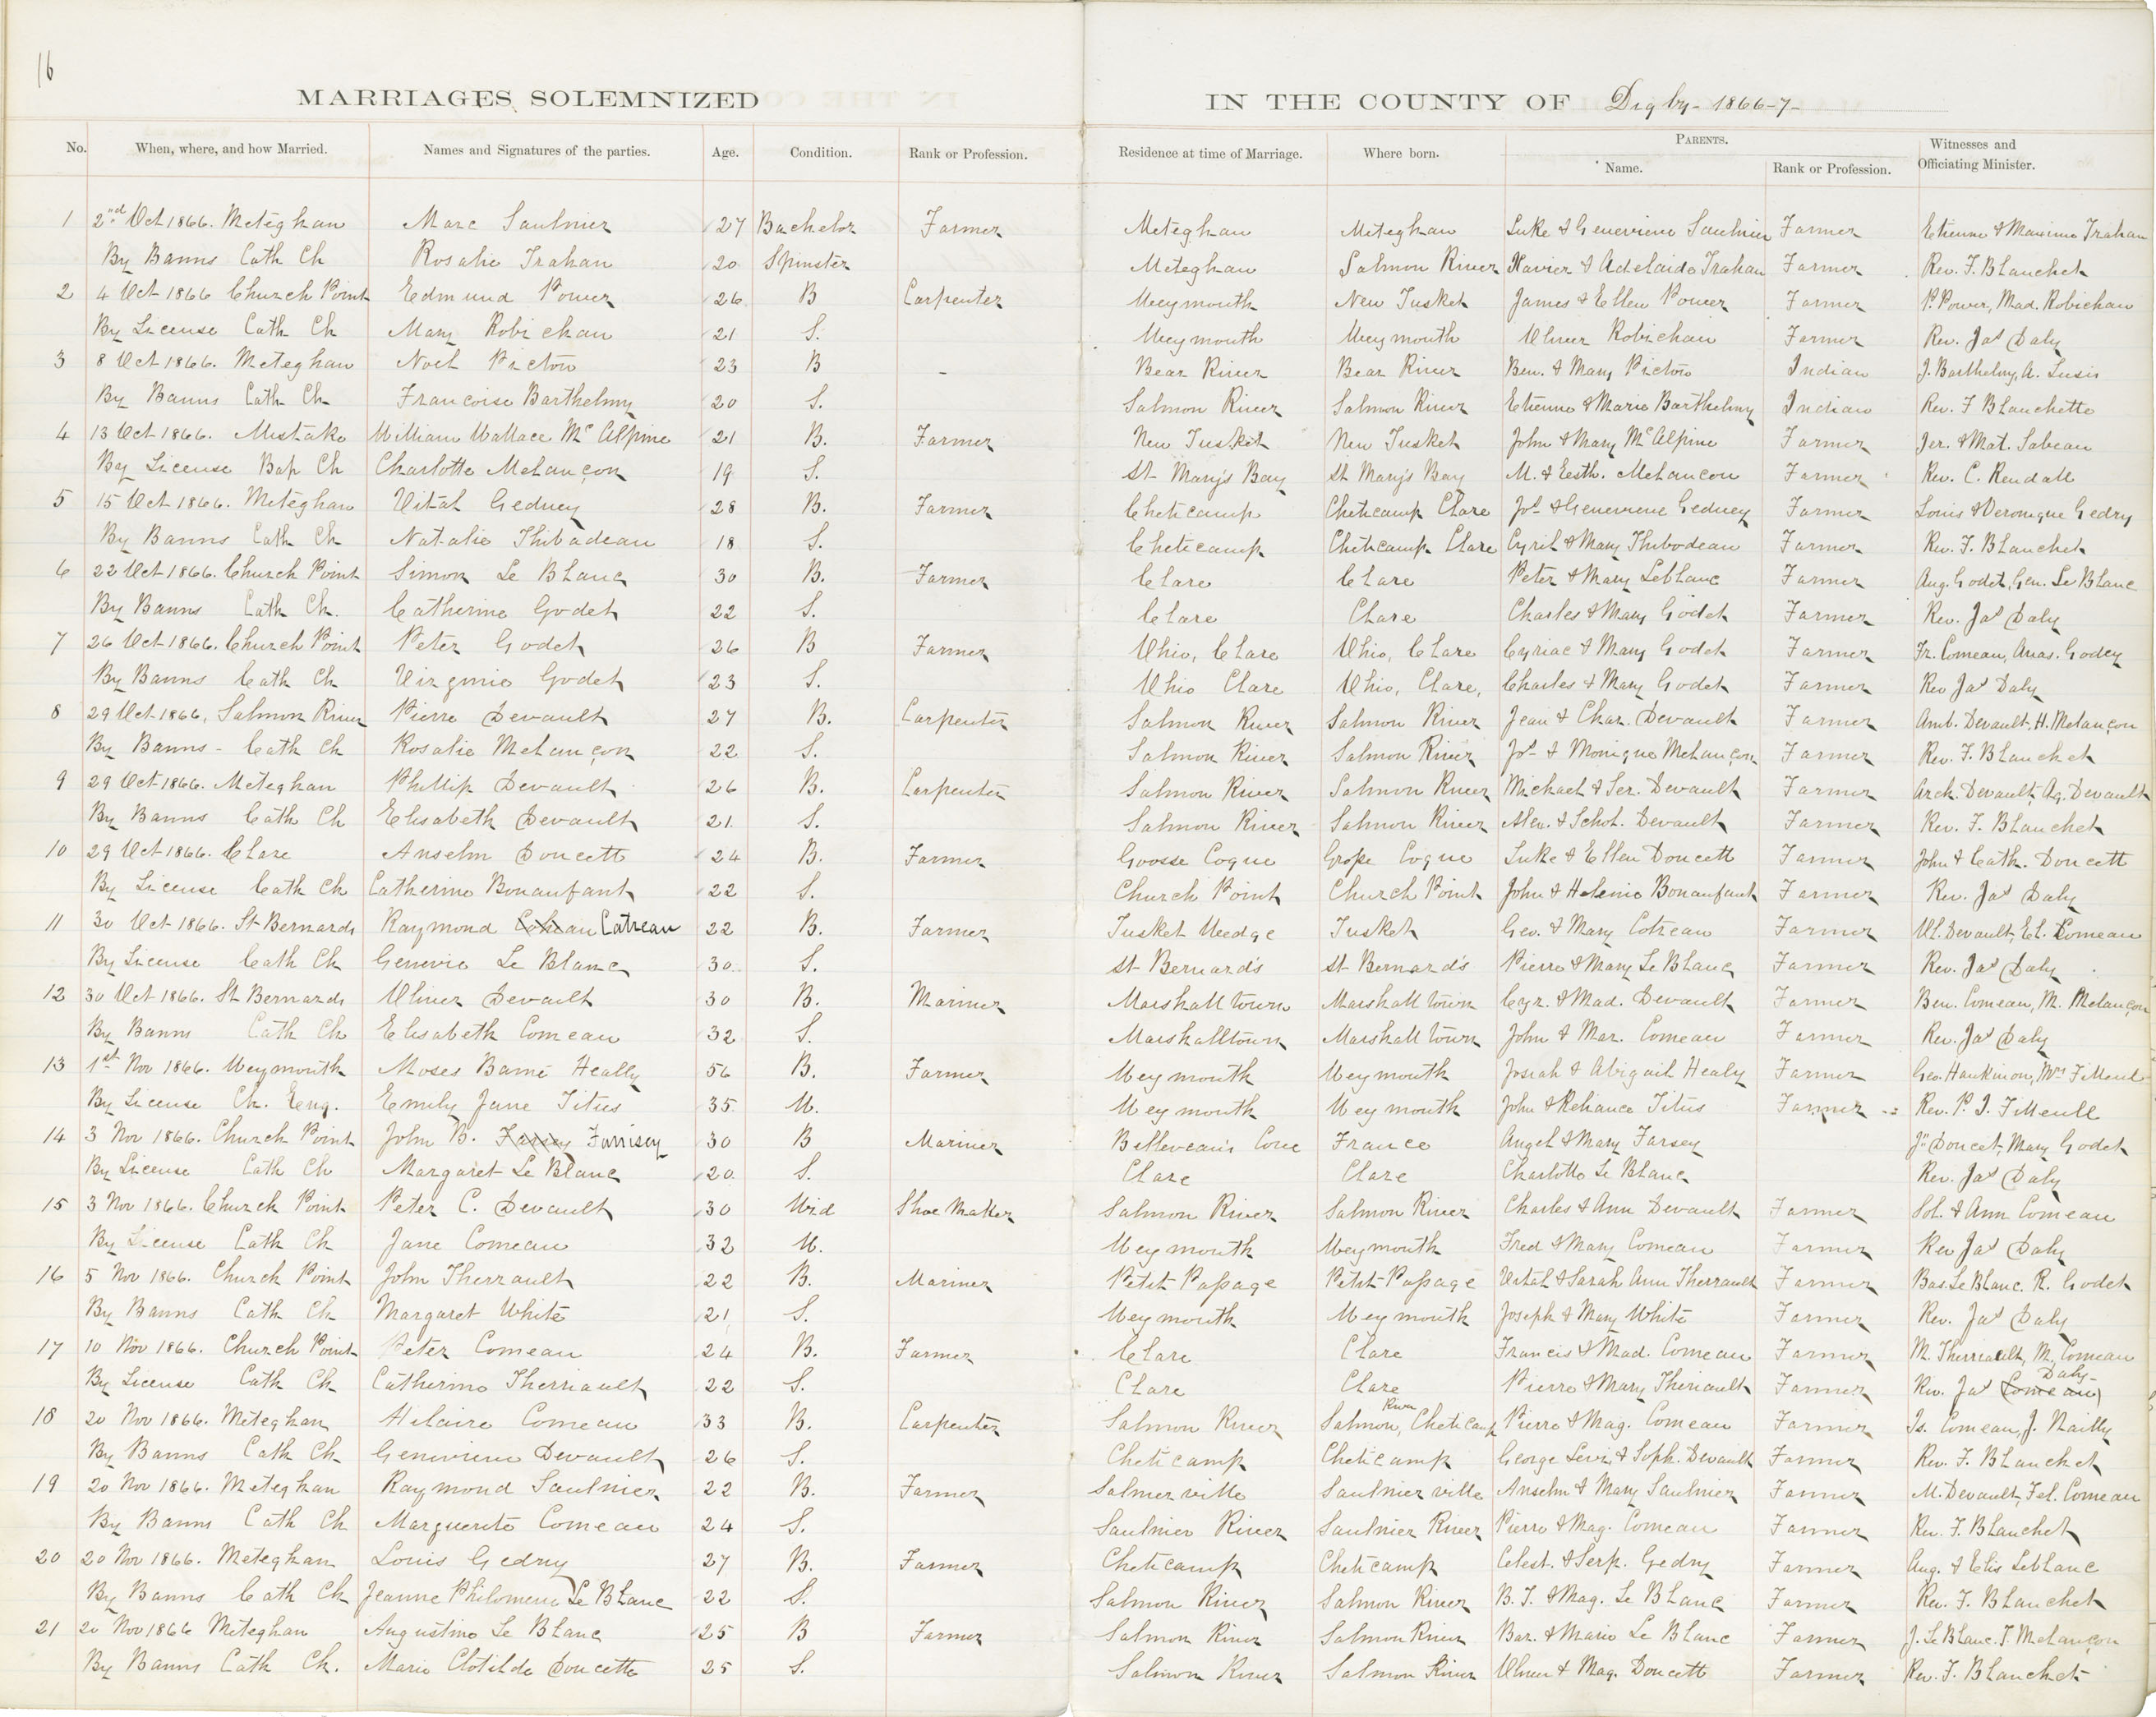 16
MARRIAGES SOLEMNIZED IN THE COUNTY OF Digby - 1866-7-
No. When, where, and how Married. Names and Signatures of the parties. Age. Condition. Rank or Profession. Residence at time of Marriage. Where born. PARENTS. Name. Rank or Profession. Witnesses and Officiating Minister.
1 2nd Oct 1866. Meteghan Marc Saulnier 27 Bachelor Farmer Meteghan Meteghan Luke & Genevieve Saulnier Farmer Etienne & Maxime Trahan
By Banns Cath Ch Rosalie Trahan 20 Spinster Meteghan Salmon River Xavier & Adelaide Trahan Farmer Rev. F. Blanchet
2 4 Oct 1866 Church Point Edmund Power 26 B Carpenter Weymouth New Tusket James & Ellen Power Farmer P. Power, Mad. Robichau
By License Cath Ch Mary Robichau 21 S. Weymouth Weymouth Oliver Robichau Farmer Rev. Jas Daly
3 8 Oct 1866. Meteghan Noel Picton 23 B - Bear River Bear River Ben. & Mary Picton Indian J. Barthelmy, A. Lusis
By Banns Cath Ch Francoise Barthelmy 20 S. Salmon River Salmon River Etienne & Marie Barthelmy Indian Rev. F Blanchette
4 13 Oct 1866. Mistake William Wallace McAlpine 21 B. Farmer New Tusket New Tusket John & Mary McAlpine Farmer Jer. & Mat. Sabean
By License Bap Ch Charlotte Melançon 19 S. St Mary's Bay St Mary's Bay M. & Eesth. Melancon Farmer Rev. C. Rendall
5 15 Oct 1866. Meteghan Vital Gedney 28 B. Farmer Cheticamp Cheticamp Clare Jos & Genevieve Gedney Farmer Louis & Veronique Gedry
By Banns Cath Ch Natalie Thibadeau 18 S. Cheticamp Cheticamp Clare Cyril & Mary Thibodeau Farmer Rev. F. Blanchet
6 22 Oct 1866. Church Point Simon Le Blanc 30 B. Farmer Clare Clare Peter & Mary Leblanc Farmer Aug. Godet, Gen. Le Blanc
By Banns Cath Ch. Catherine Godet 22 S. Clare Clare Charles & Mary Godet Farmer Rev. Jas Daly
7 26 Oct 1866. Church Point Peter Godet 26 B Farmer Ohio, Clare Ohio, Clare Cyriac & Mary Godet Farmer Fr. Comeau, Anas. Godey
By Banns Cath Ch Virginie Godet 23 S. Ohio Clare Ohio, Clare, Charles & Mary Godet Farmer Rev Jas Daly
8 29 Oct 1866, Salmon River Pierre Devault 27 B. Carpenter Salmon River Salmon River Jean & Char. Devault Farmer Amb. Devault, H. Melançon
By Banns - Cath Ch Rosalie Melançon 22 S. Salmon River Salmon River Jos & Monique Melançon Farmer Rev. F. Blanchet
9 29 Oct 1866. Meteghan Phillip Devault 26 B. Carpenter Salmon River Salmon River Michael & Ser. Devault Farmer Arch. Devault, Ag. Devault
By Banns Cath Ch Elisabeth Devault 21. S. Salmon River Salmon River Alex. & Schol. Devault Farmer Rev. F. Blanchet
10 29 Oct 1866. Clare Anselm Doucett 24 B. Farmer Goosse Coque Grosse Coque Luke & Ellen Doucett Farmer John & Cath. Doucett
By License Cath Ch Catherine Bonaufant 22 S. Church Point Church Point John & Helenie Bonaufant Farmer Rev. Jas Daly
11 30 Oct 1866. St Bernards Raymond Catreau 22 B. Farmer Tusket Wedge Tusket Geo. & Mary Cotreau Farmer Ol. Devault, El. Comeau
By License Cath Ch Genevie Le Blanc 30 S. St Bernard's St Bernard's Pierre & Mary Le Blanc Farmer Rev. Jas Daly
12 30 Oct 1866. St Bernards Oliver Devault 30 B. Mariner Marshalltown Marshalltown Cyr. & Mad. Devault Farmer Ben. Comeau, M. Melançon
By Banns Cath Ch Elisabeth Comeau 32 S. Marshalltown Marshalltown John & Mar. Comeau Farmer Rev. Jas Daly
13 1st Nov 1866. Weymouth Moses Barne Heally 56 B. Farmer Weymouth Weymouth Josiah & Abigail Healy Farmer Geo. Hankinson, Mrs Filleul
By License Ch. Eng. Emily Jane Titus 35 W. Weymouth Weymouth John & Reliance Titus Farmer Rev. P. J. Filleull
14 3 Nov 1866. Church Point John B. Farrisey 30 B Mariner Belleveau's Cove France Angel & Mary Farsey Jn Doucet, Mary Godet
By License Cath Ch Margaret Le Blanc 20 S. Clare Clare Charlotte Le Blanc Rev. Jas Daly
15 3 Nov 1866. Church Point Peter C. Devault 30 Wid Shoe Maker Salmon River Salmon River Charles & Ann Devault Farmer Sol. & Ann Comeau
By License Cath Ch Jane Comeau 32 W. Weymouth Weymouth Fred & Mary Comeau Farmer Rev Jas Daly
16 5 Nov 1866. Church Point John Therrault 22 B. Mariner Petit Passage Petit Passage Vital & Sarah Ann Therrault Farmer Bas. Le Blanc. R. Godet
By Banns Cath Ch Margaret White 21 S. Weymouth Weymouth Joseph & Mary White Farmer Rev. Jas Daly
17 10 Nov 1866. Church Point Peter Comeau 24 B. Farmer Clare Clare Francis & Mad. Comeau Farmer M. Therriault, M. Comeau
By License Cath Ch Catherine Therriault 22 S. Clare Clare Pierre & Mary Theriault Farmer Rev. Jas Comeau Daly
18 20 Nov 1866. Meteghan Hilaire Comeau 33 B. Carpenter Salmon River Salmon River, Cheticamp Pierre & Mag. Comeau Farmer Is. Comeau, J. Nailly
By Banns Cath Ch Genevieve Devault 26 S. Cheticamp Cheticamp George Levi & Soph. Devault Farmer Rev. F. Blanchet
19 20 Nov 1866. Meteghan Raymond Saulnier 22 B. Farmer Salnierville Saulnierville Anselm & Mary Saulnier Farmer M. Devault, Fel. Comeau
By Banns Cath Ch Marguerite Comeau 24 S. Saulnier River Saulnier River Pierre & Mag. Comeau Farmer Rev. F. Blanchet
20 20 Nov 1866. Meteghan Louis Gedry 27 B. Farmer Cheticamp Cheticamp Celest. & Serp. Gedry Farmer Aug. & Elis Leblanc
By Banns Cath Ch Jeanne Philomene Le Blanc 22 S. Salmon River Salmon River B. T. & Mag. Le Blanc Farmer Rev. F. Blanchet
21 20 Nov 1866 Meteghan Augustine Le Blanc 25 B Farmer Salmon River Salmon River Bar. & Marie Le Blanc Farmer J. Le Blanc. T. Melançon
By Banns Cath Ch. Marie Clotilde Doucette 25 S. Salmon River Salmon River Oliver & Mag. Doucett Farmer Rev. F. Blanchet